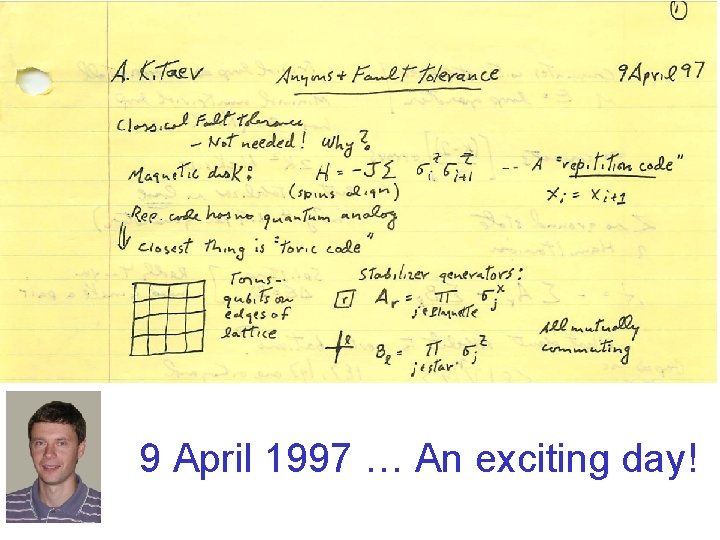 ①
A. Kitaev Anyons + Fault Tolerance 9 April 97
Classical Fault Tolerance
- Not needed! Why?
Magnetic disk: H = -JΣ σᵢᶻ σᵢ₊₁ᶻ -- A "repitition code"
(spins align) xᵢ = xᵢ₊₁
Rep. code has no quantum analog
⇓ Closest thing is "toric code"
Torus--
qubits on
edges of
lattice
Stabilizer generators:
Aᵣ = Π σⱼˣ
j∈plaquette
Bₗ = Π σⱼᶻ
j∈star
All mutually
commuting
9 April 1997 … An exciting day!